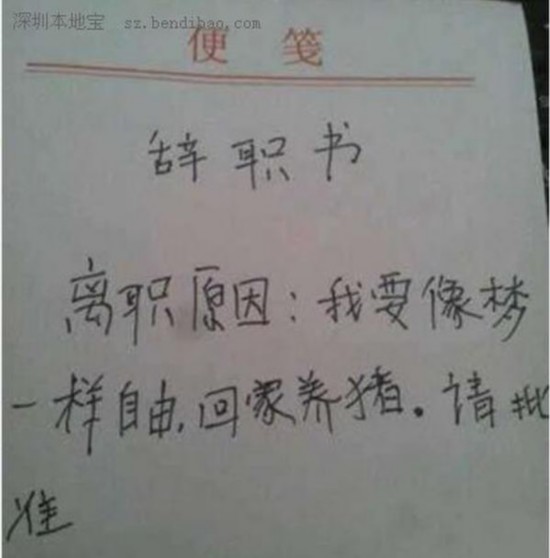 深圳本地宝 sz.bendibao.com
便笺
辞职书
离职原因：我要像梦
一样自由，回家养猪。请批
准